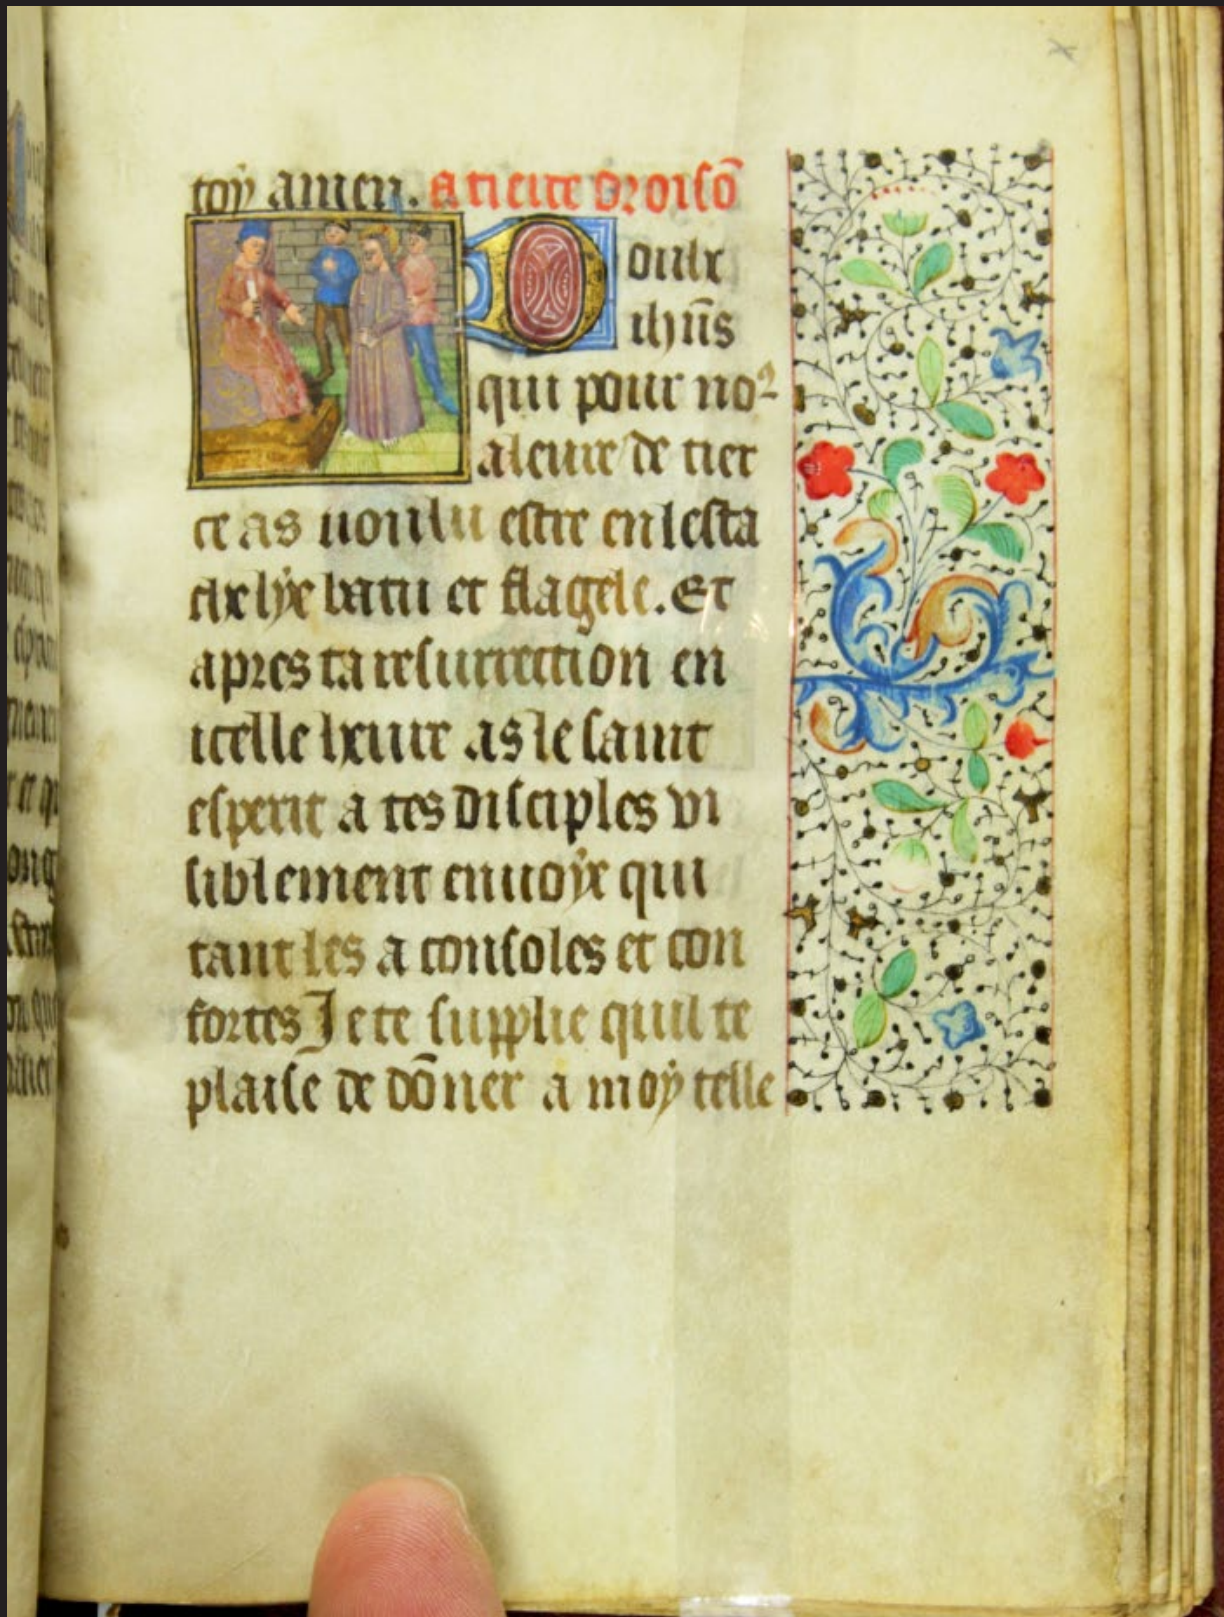 toy amen. A tierce oroisō
Doulx
ihūs
qui pour no⁹
aleure de tier
ce as voulu estre en lesta
che lye batu et flagele. Et
apres ta resurrection en
icelle heure as le saint
esperit a tes disciples vi
siblement enuoye qui
tant les a consoles et con
fortes Je te supplie quil te
plaise de dōner a moy telle